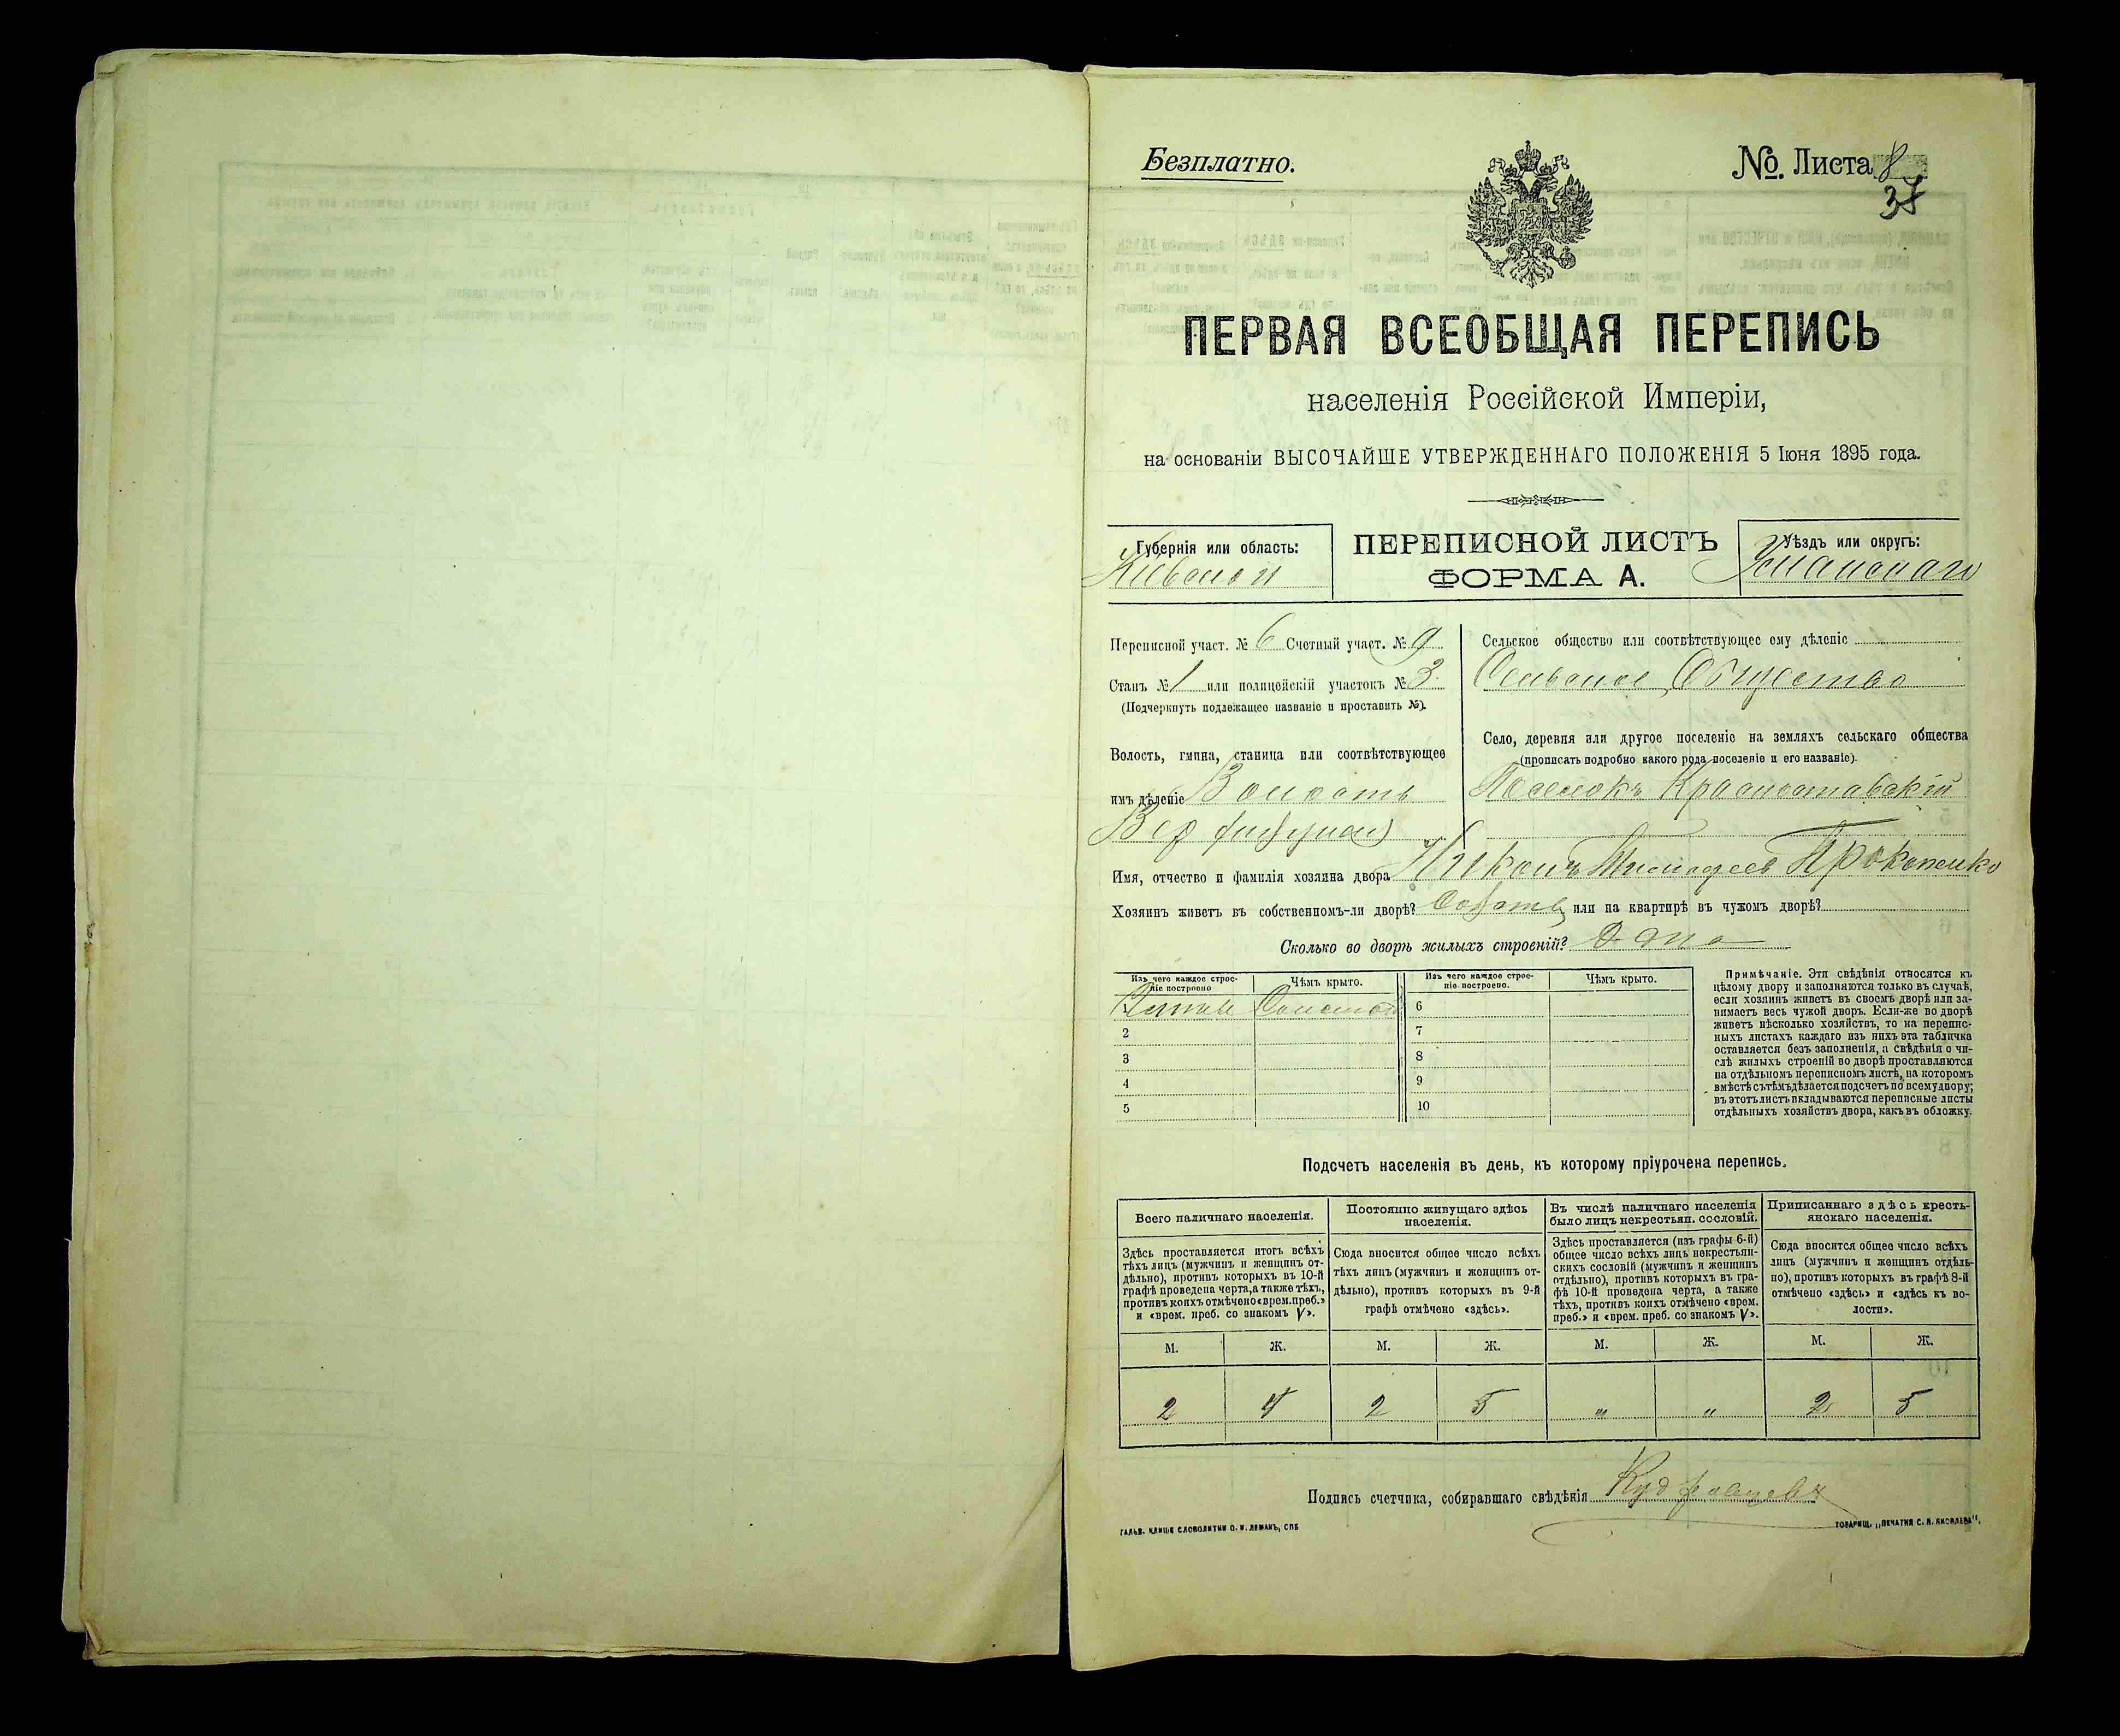 Безплатно.
№ Листа 8
37
ПЕРВАЯ ВСЕОБЩАЯ ПЕРЕПИСЬ
населенія Россійской Имперіи,
на основаніи ВЫСОЧАЙШЕ УТВЕРЖДЕННАГО ПОЛОЖЕНІЯ 5 Іюня 1895 года.
Губернія или область:
Кіевской
ПЕРЕПИСНОЙ ЛИСТЪ
ФОРМА А.
Уѣздъ или округъ:
Уманскаго
Переписной участ. № 6 Счетный участ. № 9
Станъ № 1 или полицейскій участокъ № 3
(Подчеркнуть подлежащее названіе и проставить №).
Волость, гмина, станица или соотвѣтствующее
имъ дѣленіе Волость
Сельское общество или соотвѣтствующее ему дѣленіе
Сельское Общество
Село, деревня или другое поселеніе на земляхъ сельскаго общества
(прописать подробно какого рода поселеніе и его названіе).
Поселокъ Красноставскій
Имя, отчество и фамилія хозяина двора Никонъ Тимофеев Прокопенко
Хозяинъ живетъ въ собственномъ-ли дворѣ? или на квартирѣ въ чужомъ дворѣ?
Сколько во дворѣ жилыхъ строеній? Одно
Изъ чего каждое строе-
ніе построено
Чѣмъ крыто.
Изъ чего каждое строе-
ніе построено.
Чѣмъ крыто.
1 Соломой 6
2 7
3 8
4 9
5 10
Примѣчаніе. Эти свѣдѣнія относятся къ
цѣлому двору и заполняются только въ случаѣ,
если хозяинъ живетъ въ своемъ дворѣ или за-
нимаетъ весь чужой дворъ. Если-же во дворѣ
живетъ нѣсколько хозяйствъ, то на перепис-
ныхъ листахъ каждаго изъ нихъ эта табличка
оставляется безъ заполненія, а свѣдѣнія о чи-
слѣ жилыхъ строеній во дворѣ проставляются
на отдѣльномъ переписномъ листѣ, на которомъ
вмѣстѣ съ тѣмъ дѣлается подсчетъ по всему двору;
въ этотъ листъ вкладываются переписные листы
отдѣльныхъ хозяйствъ двора, какъ въ обложку.
Подсчетъ населенія въ день, къ которому пріурочена перепись.
Всего наличнаго населенія.
Здѣсь проставляется итогъ всѣхъ
тѣхъ лицъ (мужчинъ и женщинъ от-
дѣльно), противъ которыхъ въ 10-й
графѣ проведена черта, а также тѣхъ,
противъ коихъ отмѣчено «врем. преб.»
и «врем. преб. со знакомъ V».
Постоянно живущаго здѣсь
населенія.
Сюда вносится общее число всѣхъ
тѣхъ лицъ (мужчинъ и женщинъ от-
дѣльно), противъ которыхъ въ 9-й
графѣ отмѣчено «здѣсь».
Въ числѣ наличнаго населенія
было лицъ некрестьян. сословій.
Здѣсь проставляется (изъ графы 6-й)
общее число всѣхъ лицъ некрестьян-
скихъ сословій (мужчинъ и женщинъ
отдѣльно), противъ которыхъ въ гра-
фѣ 10-й проведена черта, а также
тѣхъ, противъ коихъ отмѣчено «врем.
преб.» и «врем. преб. со знакомъ V».
Приписаннаго здѣсь кресть-
янскаго населенія.
Сюда вносится общее число всѣхъ
лицъ (мужчинъ и женщинъ отдѣль-
но), противъ которыхъ въ графѣ 8-й
отмѣчено «здѣсь» и «здѣсь къ во-
лости».
М. Ж. М. Ж. М. Ж. М. Ж.
2 4 2 5 " " 2 5
Подпись счетчика, собиравшаго свѣдѣнія
ГАЛЬВ. КЛИШЕ СЛОВОЛИТНИ О. И. ЛЕМАНЪ, СПБ
ТОВАРИЩ. „ПЕЧАТНЯ С. П. ЯКОВЛЕВА".